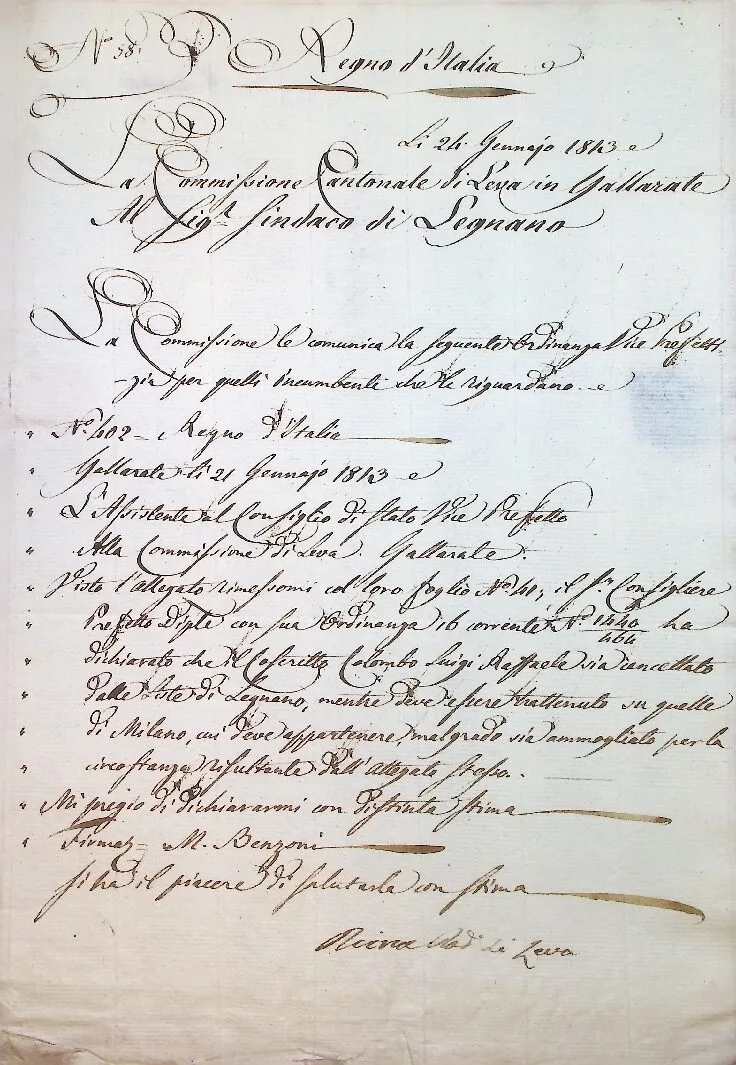 N.º 58. Regno d'Italia
Li 24 Gennajo 1813
La Commissione Cantonale di Leva in Gallarate
Al Sig.r Sindaco di Legnano
La Commissione le comunica la seguente Ordinanza Vice Prefetti-
-zia per quelli incumbenti che le riguardano.
" N.º 402 = Regno d'Italia
" Gallarate li 21 Gennajo 1813
" L'Assistente al Consiglio di Stato Vice Prefetto
" Alla Commissione di Leva. Gallarate.
" Visto l'allegato rimessomi col loro foglio N.º 40; il S.r Consigliere
" Prefetto Diple con sua Ordinanza 16 corrente N.º 1440/464 ha
" dichiarato che il Coscritto Colombo Luigi Raffaele sia cancellato
" dalle liste di Legnano, mentre deve essere trattenuto su quelle
" di Milano, cui deve appartenere, malgrado sia ammogliato per la
" circostanza risultante dall'allegato stesso.
" Mi pregio di dichiararmi con distinta stima
" Firmaz = M. Benzoni
Si ha il piacere di salutarla con stima
di Leva